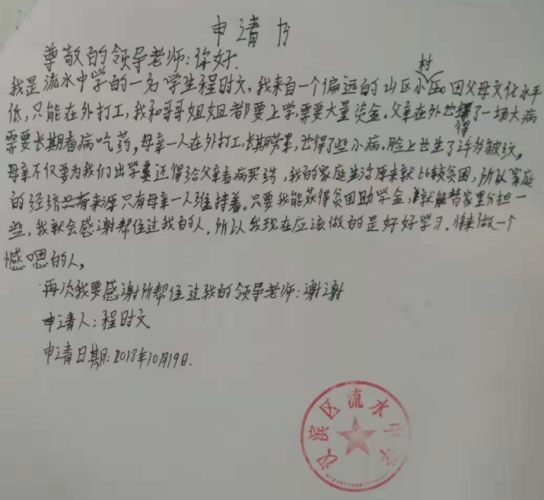 申请书
尊敬的领导老师:你好.
村
我是流水中学的一名学生程时文、我来自一个偏远的山区小区,因父母文化水平
低,只能在外打工,我和哥哥姐姐都要上学,需要大量资金。父亲在外出了一场大病
得
需要长期看病吃药,母亲一人在外打工长期劳累,也得了些小病.脸上也生了许多皱纹,
母亲不仅要为我们出学费还得给父亲看病买药.我的家庭生活原本就比较贫困,所以家庭
的经济来源只有母亲一人维持着。只要我能获得贫困助学金,就能替家里分担一
些,我就会感谢帮住过我的人,所以我现在应该做的是好好学习.将来做一个
感恩的人,
再次我要感谢所帮住过我的领导老师:谢谢
申请人:程时文
申请日期:2018年10月19日.
滨区流水中学